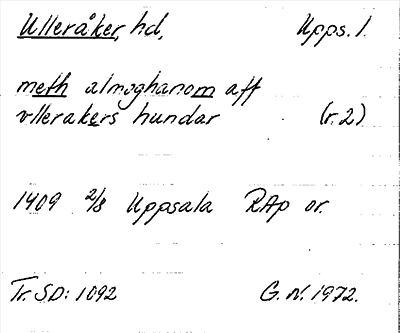 Ulleråker, hd, Upps. l.
meth almoghanom aff
vllerakers hundar (r. 2)
1409 2/8 Uppsala RAp or.
Tr. SD: 1092 G. N. 1972.